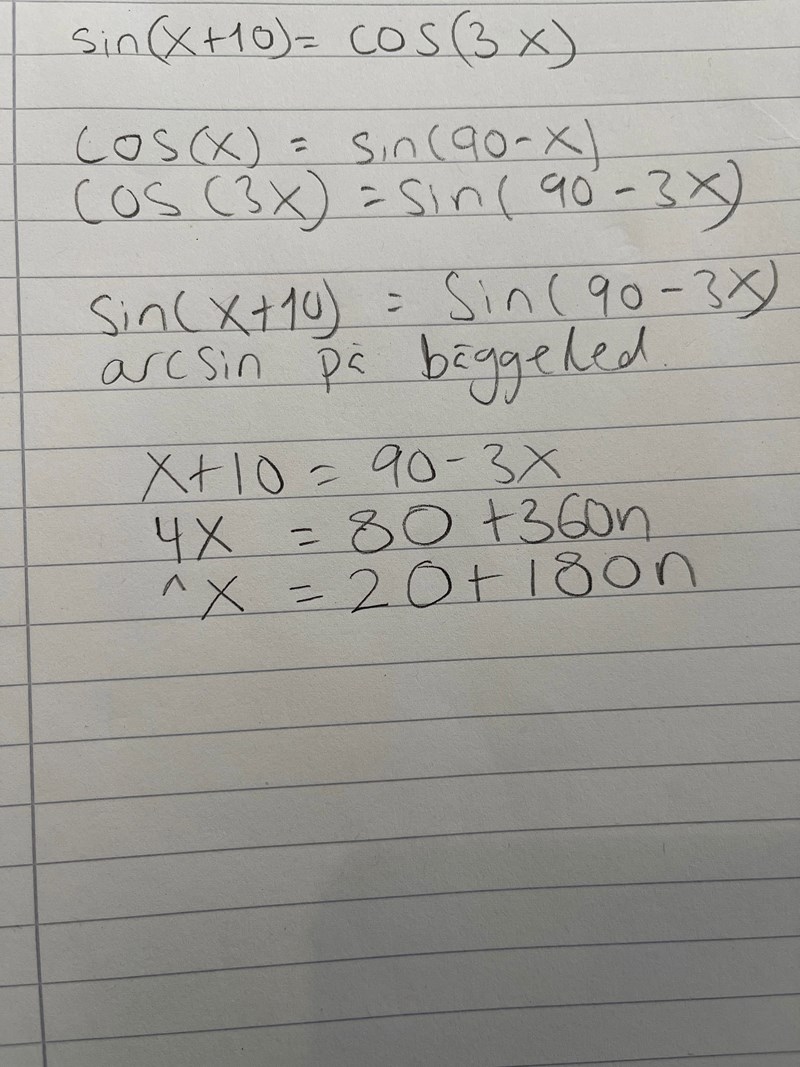 sin(x+10)= cos(3x)
cos(x) = sin(90-x)
cos(3x) = sin(90-3x)
sin(x+10) = sin(90-3x)
arcsin på bäggeled.
x+10 = 90-3x
4x = 80+360n
^x = 20+180n